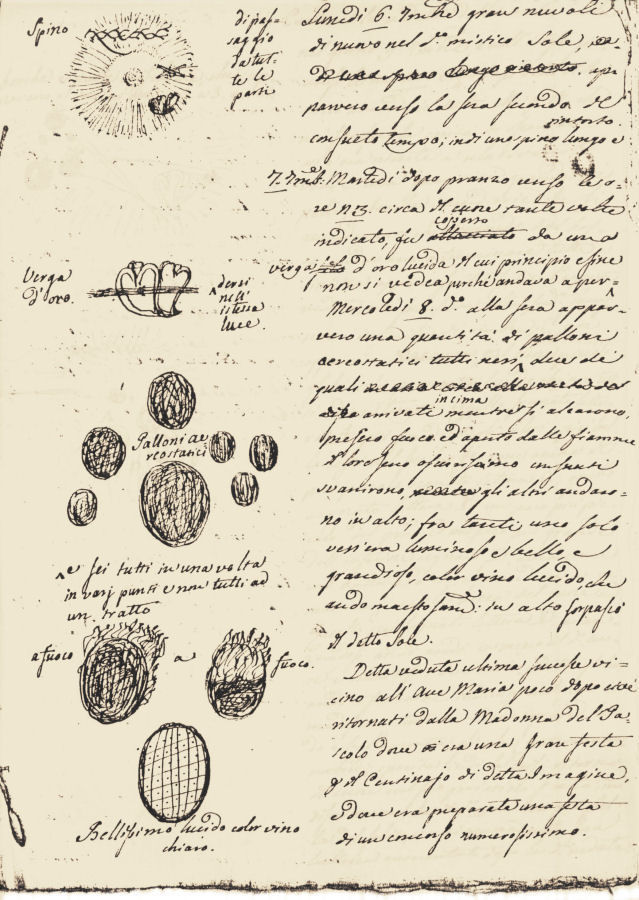 Spino
di pas-
saggio
da tut-
te le
parti
Lunedì 6. 7mbre gran nuvoli
di nuovo nel do. mistico Sole, e
ap-
parvero verso la sera secondo il
consueto tempo; indi uno spino lungo e
intorto.
7. 7mbre. Martedì dopo pranzo verso le o-
re n 23. circa il cuore tante volte
indicato, fu coperto da una
verga d'oro lucida il cui principio e fine
non si vedea perchè andava a per-
Verga
d'oro.
dersi
nell'
istessa
luce.
Mercoledì 8. do. alla sera appar-
vero una quantità di palloni
aereostatici tutti neri, due de
quali
arrivate in cima mentre si alzarono,
presero fuoco, ed aperto dalle fiamme
il loro seno oscurissimo consunti
svanirono, gli altri andaro-
no in alto; fra tanti uno solo
ven'era luminoso e bello, e
grandioso, color vino lucido che
andò maestosame: in alto sorpassò
il detto Sole.
Palloni ae-
reostatici
e sei tutti in una volta
in varj punti e non tutti ad
un tratto
a fuoco
a
fuoco.
Detta veduta ultima successe vi-
cino all'Ave Maria poco dopo essere
ritornati dalla Madonna del Pa-
scolo dove era una gran festa
p il Centinajo di detta Imagine,
e dove era preparata una festa
di un concorso numerosissimo.
Bellissimo lucido color vino
chiaro.